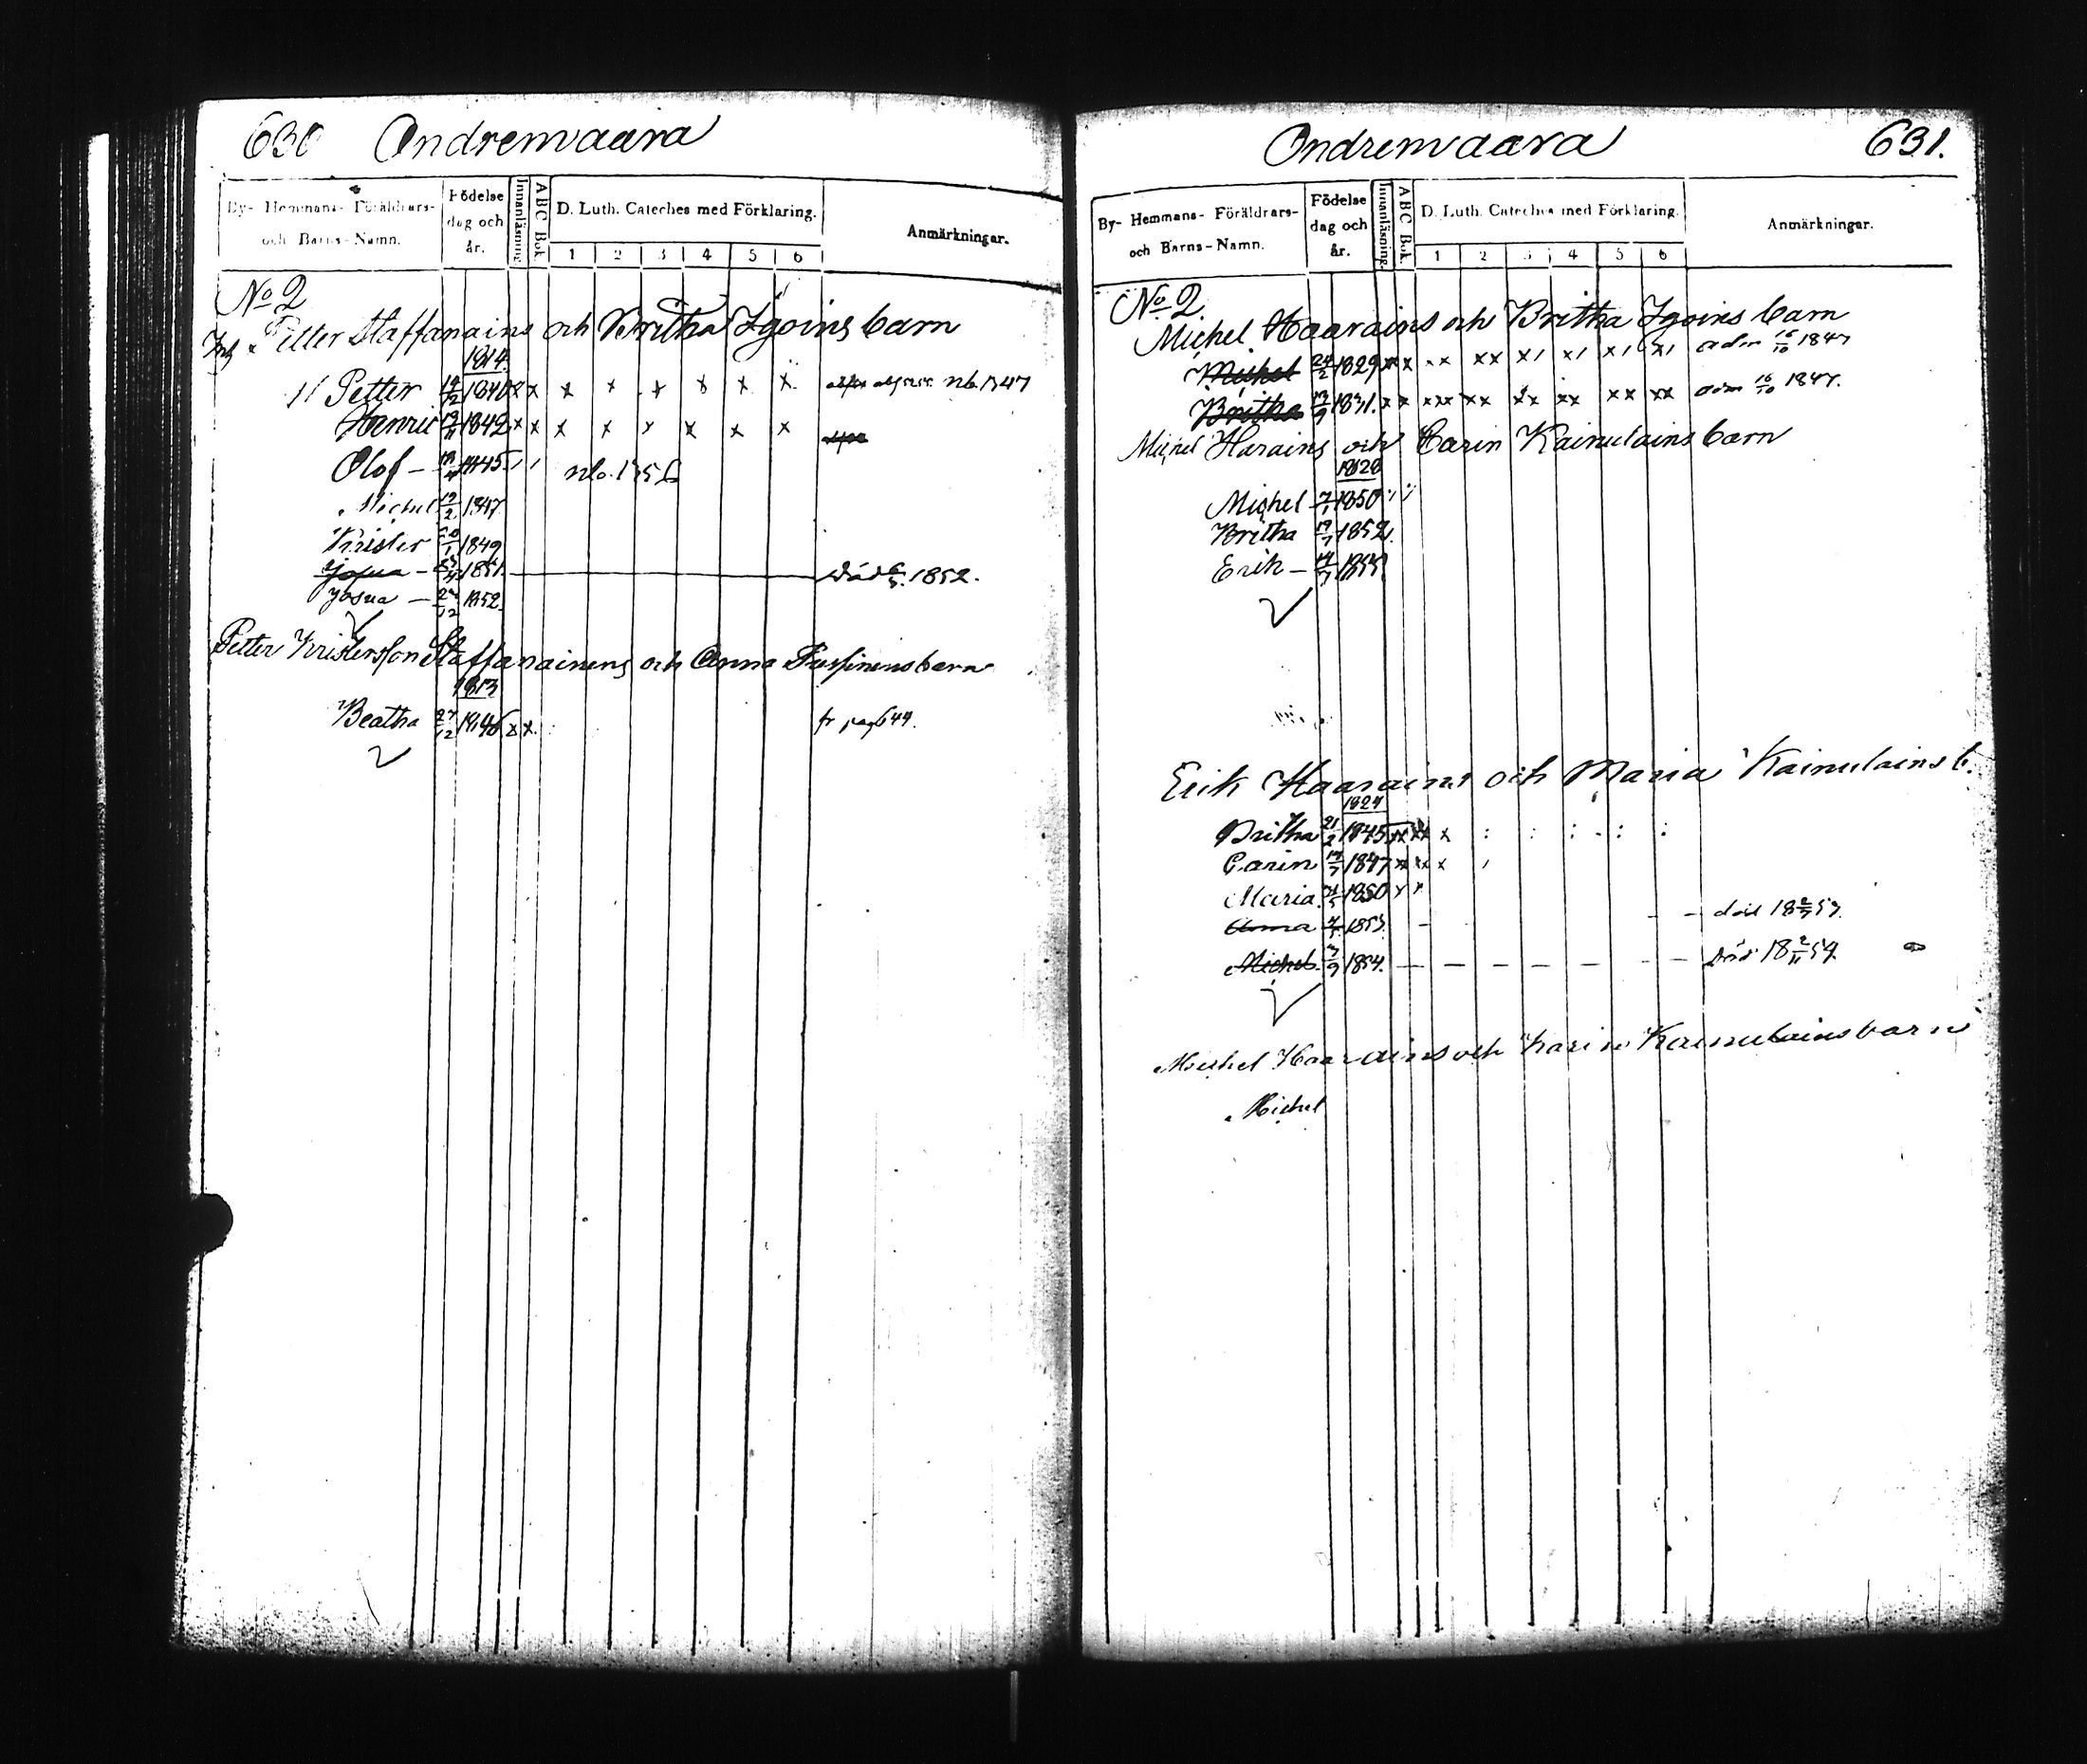 630 Ondremvaara
By- Hemmans- Föräldrars- och Barns-Namn.
Födelse dag och år.
Innanläsning.
ABC Bok.
D. Luth. Cateches med Förklaring.
1 2 3 4 5 6
Anmärkningar.
No 2
Petter Staffanains och Britha Igoins barn
1814.
Petter 1840 x x x x x x x x
Henric 1842 x x x x x x x x
Olof - 1845
Michel 19/2 1847
Krister 1849
Josua - 1851 Död 1852.
Josua - 1852
Petter Kristersson Staffanainens och Anna barn
1813
Beatha 27/12 1846 x x fr pag 644.
Ondremvaara 631.
By- Hemmans- Föräldrars- och Barns-Namn.
Födelse dag och år.
Innanläsning.
ABC Bok.
D. Luth. Cateches med Förklaring.
1 2 3 4 5 6
Anmärkningar.
No 2.
Michel Haarains och Britha Igoins barn
Michel 24/2 1829 adm 16/10 1847
Britha 1831. adm 16/10 1847.
Michel Harains och Carin Kainulains barn
Michel 1850
Britha 1852
Erik -
Erik Haarains och Maria Kainulains b.
1824
Britha 21/2 1845
Carin 1847
Maria 1850
Anna 1853 död
Michel 1854. Död 18 2/11 54.
Michel Haarains och Karin Kainulains barn
Michel